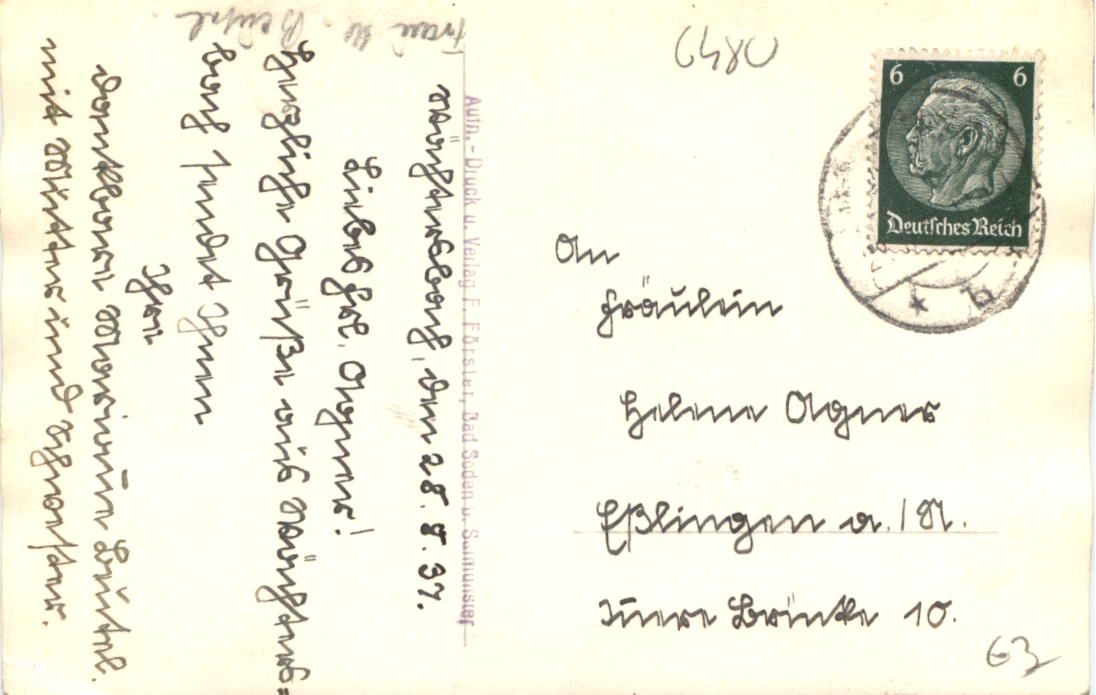 Wächtersbach, den 28. 8. 37.
Liebes Frl. Agner!
Herzliche Grüße aus Wächters=
bach sendet Ihnen
Ihre
dankbare Marianne Beutel.
mit Mutter und Schwester.
Frau M. Beutel
Aufn.-Druck u. Verlag F. Förster, Bad Soden u. Salmünster
6 6
Deutsches Reich
b
An
Fräulein
Helene Agner
Eßlingen a./N.
Innere Brücke 10.
63